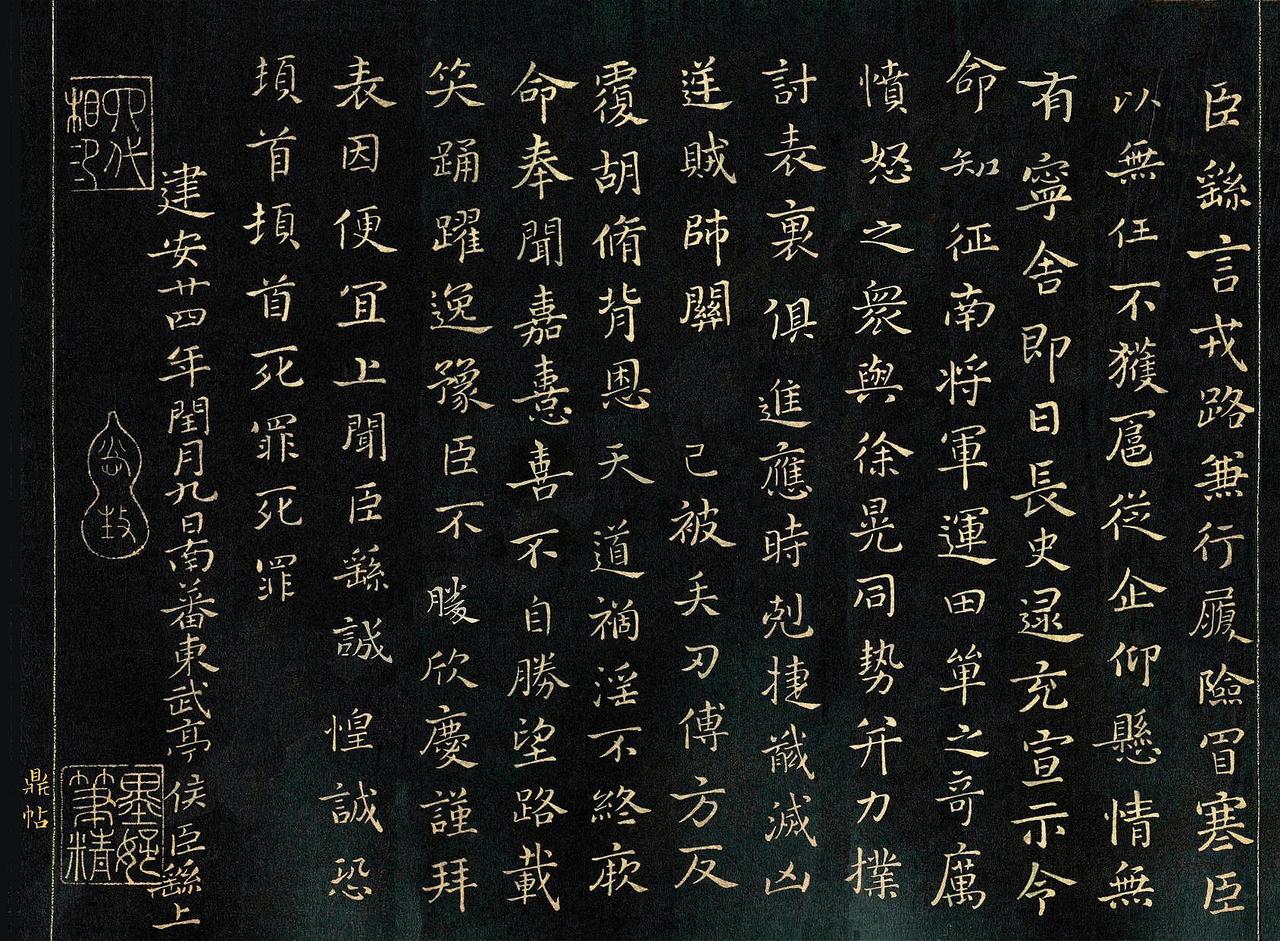 臣繇言戎路兼行履險冒寒臣
以無任不獲扈從企仰懸情無
有寧舍即日長史逯充宣示令
命知征南将軍運田單之奇厲
憤怒之衆與徐晃同勢并力撲
討表裏俱進應時剋捷馘滅凶
逆賊帥關 已被矢刃傅方反
覆胡脩背恩天道禍淫不終厥
命奉聞嘉憙喜不自勝望路載
笑踊躍逸豫臣不勝欣慶謹拜
表因便宜上聞臣繇誠惶誠恐
頓首頓首死罪死罪
建安廿四年閏月九日南蕃東武亭侯臣繇上
四代相印
墨妙筆精
鼎帖